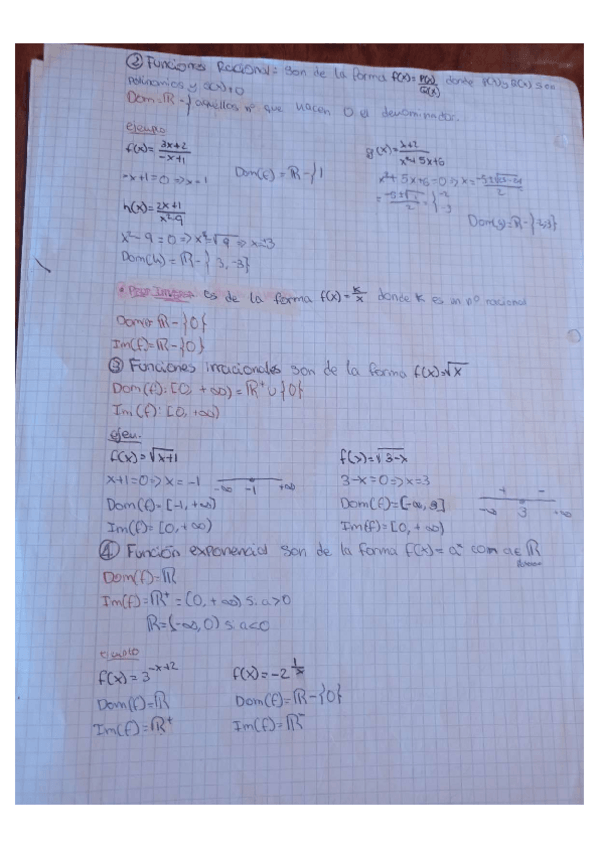 ② Funciones Racional: son de la forma f(x)=P(x)/Q(x) donde P(x) y Q(x) son
polinomios y Q(x)≠0
Dom=ℝ-{aquellos nº que hacen 0 el denominador.
ejemplo
f(x)=3x+2/-x+1
g(x)=x+2/x²+5x+6
-x+1=0=>x=1
Dom(f)=ℝ-{1
x²+5x+6=0=>x=
h(x)=2x+1/x²-9
Dom(g)=ℝ-{-2,-3}
x²-9=0=>x=√9=>x=±3
Dom(h)=ℝ-{3,-3}
Prop Inversa Es de la forma f(x)=K/x donde K es un nº racional
Dom ℝ-{0}
Im(f)=ℝ-{0}
③ Funciones irracionales son de la forma f(x)=√x
Dom(f):[0,+∞)=ℝ⁺∪{0}
Im(f):[0,+∞)
ejem:
f(x)=√x+1
f(x)=√3-x
x+1=0=>x=-1
-∞ -1 +∞
3-x=0=>x=3
+ -
-∞ 3 +∞
Dom(f)=[-1,+∞)
Dom(f)=(-∞,3]
Im(f)=[0,+∞)
Im(f)=[0,+∞)
④ Función exponencial son de la forma f(x)=aˣ com a∈ℝ
Dom(f)=ℝ
Im(f)=ℝ⁺=(0,+∞) si a>0
ℝ=(-∞,0) si a<0
ejemplo
f(x)=3^(-x+2)
f(x)=-2^(1/x)
Dom(f)=ℝ
Dom(f)=ℝ-{0}
Im(f)=ℝ⁺
Im(f)=ℝ⁻